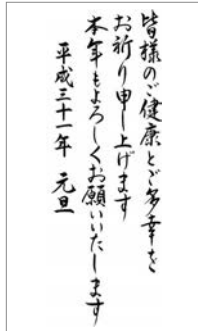 皆様のご健康とご多幸を
お祈り申し上げます
本年もよろしくお願いいたします
平成三十一年 元旦